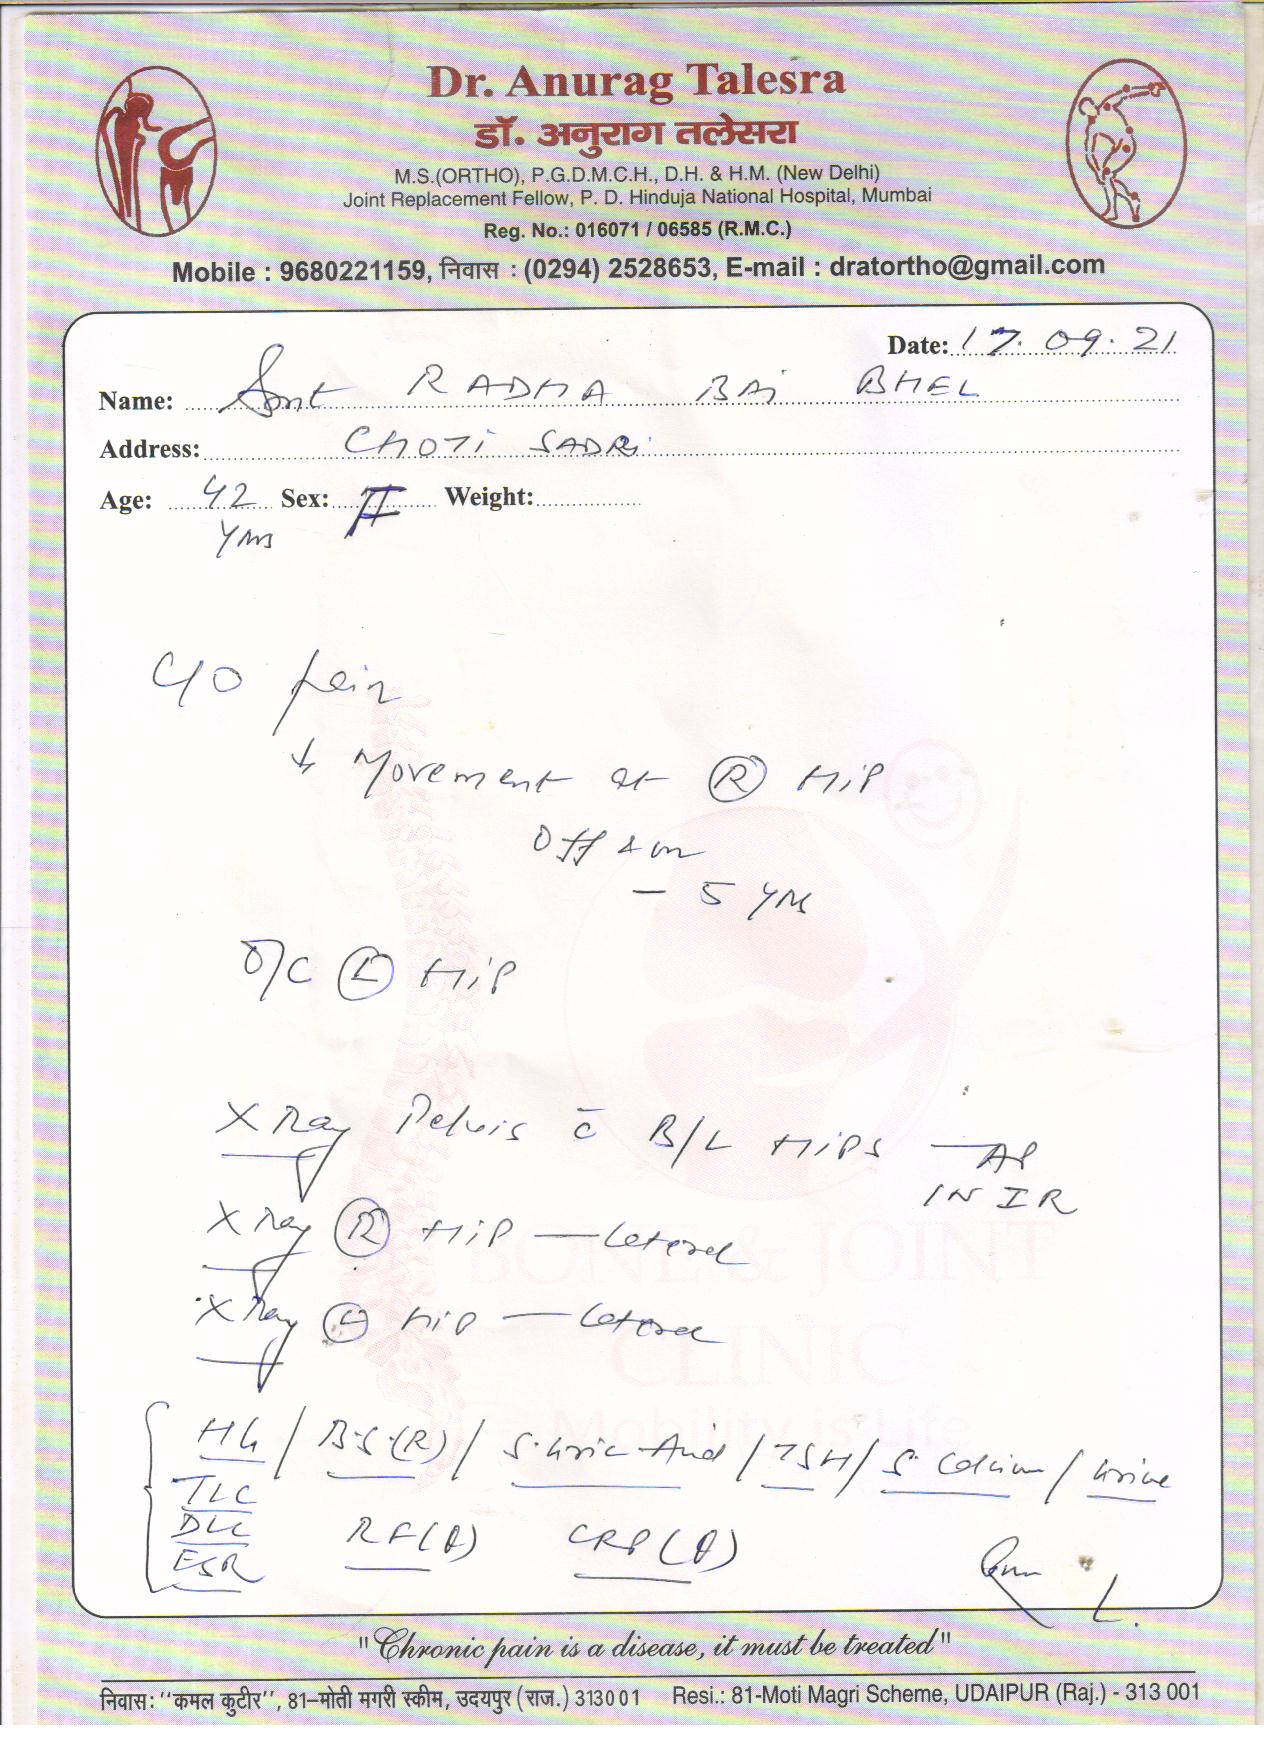 Dr. Anurag Talesra
डॉ. अनुराग तलेसरा
M.S.(ORTHO), P.G.D.M.C.H., D.H. & H.M. (New Delhi)
Joint Replacement Fellow, P. D. Hinduja National Hospital, Mumbai
Reg. No.: 016071 / 06585 (R.M.C.)
Mobile : 9680221159, निवास : (0294) 2528653, E-mail : dratortho@gmail.com
Date: 17.09.21
Name: Smt RADHA BAI BHEL
Address: CHOTI SADRi
Age: 42 yrs Sex: F Weight:
C/O Pain
↓ Movement at (R) HiP
Off & on
- 5 yrs
O/C (L) HiP
X Ray Pelvis c̄ B/L HiPS — AP
IN IR
X Ray (R) HiP — Lateral
X Ray (L) HiP — Lateral
Hb / B.S.(R) / S. Uric Acid / TSH / S. Calcium / Urine
TLC
DLC RF(A) CRP(A)
ESR
BONE & JOINT
CLINIC
Mobility is Life
"Chronic pain is a disease, it must be treated"
निवास: ''कमल कुटीर'', 81–मोती मगरी स्कीम, उदयपुर (राज.) 313001 Resi.: 81-Moti Magri Scheme, UDAIPUR (Raj.) - 313 001